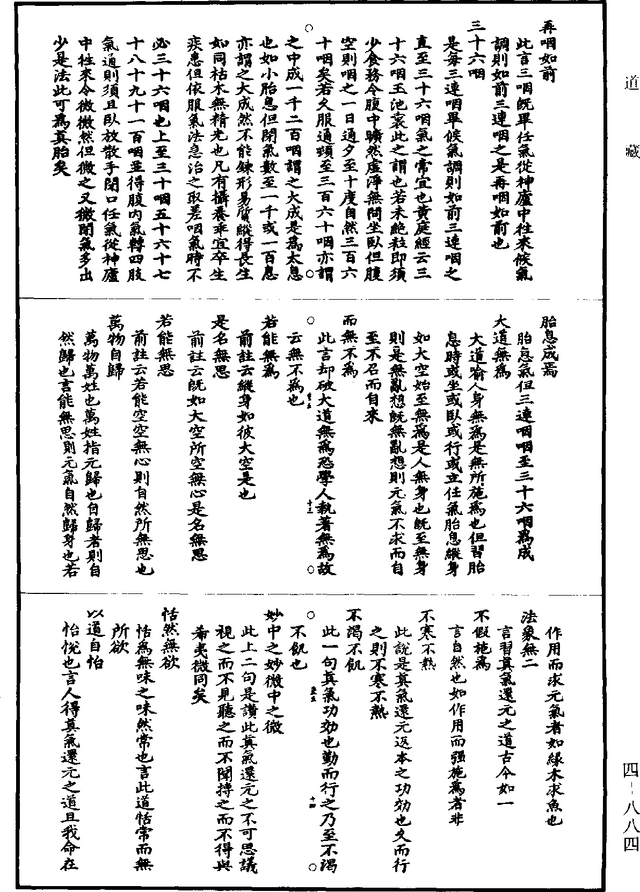 道藏
再咽如前
此言三咽既畢任氣從神廬中往來候氣
調則如前三連咽之是再咽如前也
三十六咽
是每三連咽畢候氣調則如前三連咽之
直至三十六咽氣之常宜也黃庭經云三
十六咽玉池裏此之謂也若未絶粒即須
少食務令腹中曠然虛淨無問坐臥但腹
空則咽之一日通夕至十度自然三百六
十咽矣若久服通頓至三百六十咽亦謂
之中成一千二百咽謂之大成是為太息
也如小胎息但閉氣數至一千或一百息
亦謂之大成然不能鍊形易質縱得長生
如同枯木無精光也凡有攝養乖宜卒生
疾患但依服氣法息治之取差咽氣時不
必三十六咽也上至三十咽五十六十七
十八十九十一百咽並得腹内氣轉四肢
氣通則須且臥放散手閉口任氣從神廬
中往來令微微然但微之又微閉氣多出
少是法此可為真胎矣
胎息成焉
胎息氣但三連咽咽至三十六咽為成
大道無為
大道喻人身無為是無所施為也但習胎
息時或坐或臥或行或立任氣胎息縱身
如大空始至無為是人無身也既至無身
則是無亂想既無亂想則元氣不求而自
至不召而自來
而無不為
此言却破大道無為恐學人執著無為故
云無不為也
若能無為
前註云縱身如彼大空是也
是名無思
前註云既如大空所空無心是名無思
若能無思
前註云若能空空無心則自然所無思也
萬物自歸
萬物萬姓也萬姓指元歸也自歸者則自
然歸也言能無思則元氣自然歸身也若
作用而求元氣者如緣木求魚也
法象無二
言習真氣還元之道古今如一
不假施為
言自然也如作用而强施為者非
不寒不熱
此說是真氣還元返本之功効也久而行
之則不寒不熱
不渴不飢
此一句真氣功効也勤而行之乃至不渴
不飢也
妙中之妙微中之微
此上二句是讚此真氣還元之不可思議
視之而不見聽之而不聞摶之而不得與
希夷微同矣
恬然無欲
恬為無味之味然常也言此道恬常而無
所欲
以道自怡
怡悅也言人得真氣還元之道且我命在
四-八八四